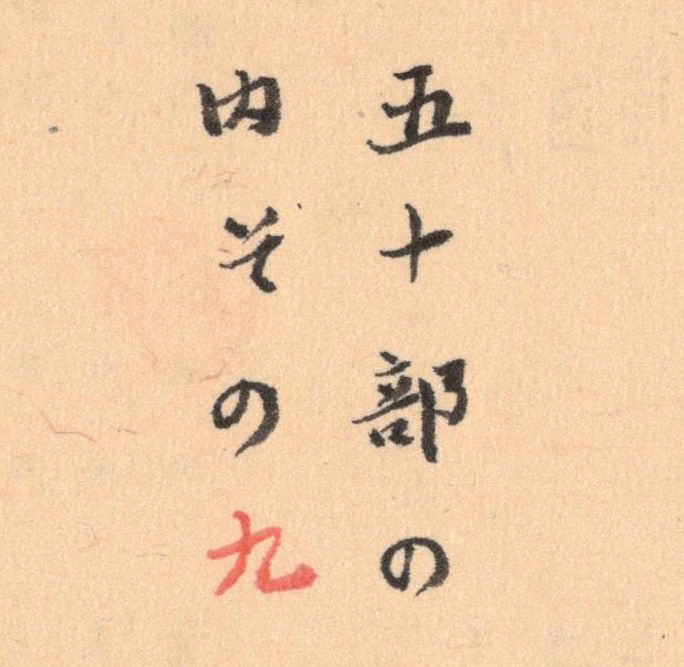 五十部の
内その九